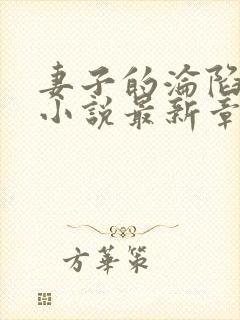 妻子的淪陷
小說最新章
方華策